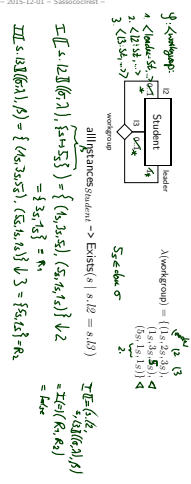 – 2015-12-01 – Sassococirest –
φ: ⟨workgroup:
1. ⟨leader, St., ...⟩
2. ⟨l2: St., ...⟩
3. ⟨l3: St., ...⟩
Student
l2
leader
l3
0..1
workgroup
λ(workgroup) = {(1s, 2s, 3s),
(1s, 3s, 5s),
(5s, 1s, 1s)}
leader l2 l3
2.
allInstances_Student -> Exists(s | s.l2 = s.l3)
I⟦s.l2⟧((σ,λ), {s↦5s}) = {(1s,3s,5s), (5s,1s,1s)} ↓ 2
= {3s, 1s} = R₁
I⟦s.l3⟧((σ,λ), β) = {(1s,3s,5s), (5s,1s,1s)} ↓ 3 = {5s, 1s} = R₂
I⟦=(s.l2, s.l3)⟧((σ,λ), β)
= I(=)(R₁, R₂)
= false